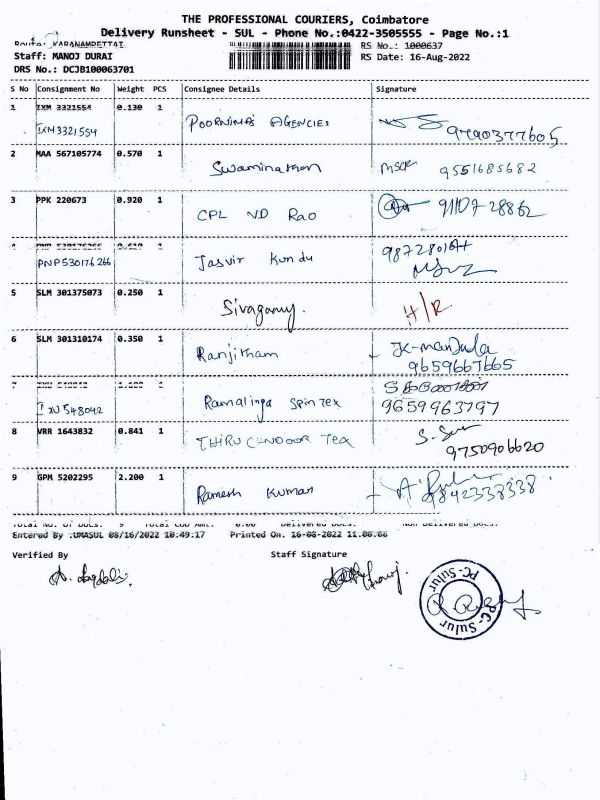 THE PROFESSIONAL COURIERS, Coimbatore
Delivery Runsheet - SUL - Phone No.:0422-3505555 - Page No.:1
Route: KARANAMPETTAI
RS No.: 1000637
Staff: MANOJ DURAI
RS Date: 16-Aug-2022
DRS No.: DCJB100063701
S No Consignment No Weight PCS Consignee Details Signature
1 IXM 3321554 0.130 1
IXM3321554 POORNIMA'S AGENCIES 9790377605
2 MAA 567105774 0.570 1
Swaminathan 9551685682
3 PPK 220673 0.920 1
CPL ND Rao
4 PNP 530176266 0.610 1
PNP530176266 Jasvir Kundu
5 SLM 301375073 0.250 1
Sivagamy. H/R
6 SLM 301310174 0.350 1
Ranjitham JK-manjula
9659667665
7 1
IXU 548042 Ramalinga Spin Tex
9659963797
8 VRR 1643832 0.841 1
THIRUCHNDOOR TEX
9750906620
9 GPM 5202295 2.200 1
Ramesh Kumar 9842338338
Total No. Of Docs. 9 Total COD Amt. 0.00 Delivered Docs. Non Delivered Docs.
Entered By :UMASUL 08/16/2022 10:49:17 Printed On.
Verified By Staff Signature
PC-Sulur
PC-Sulur